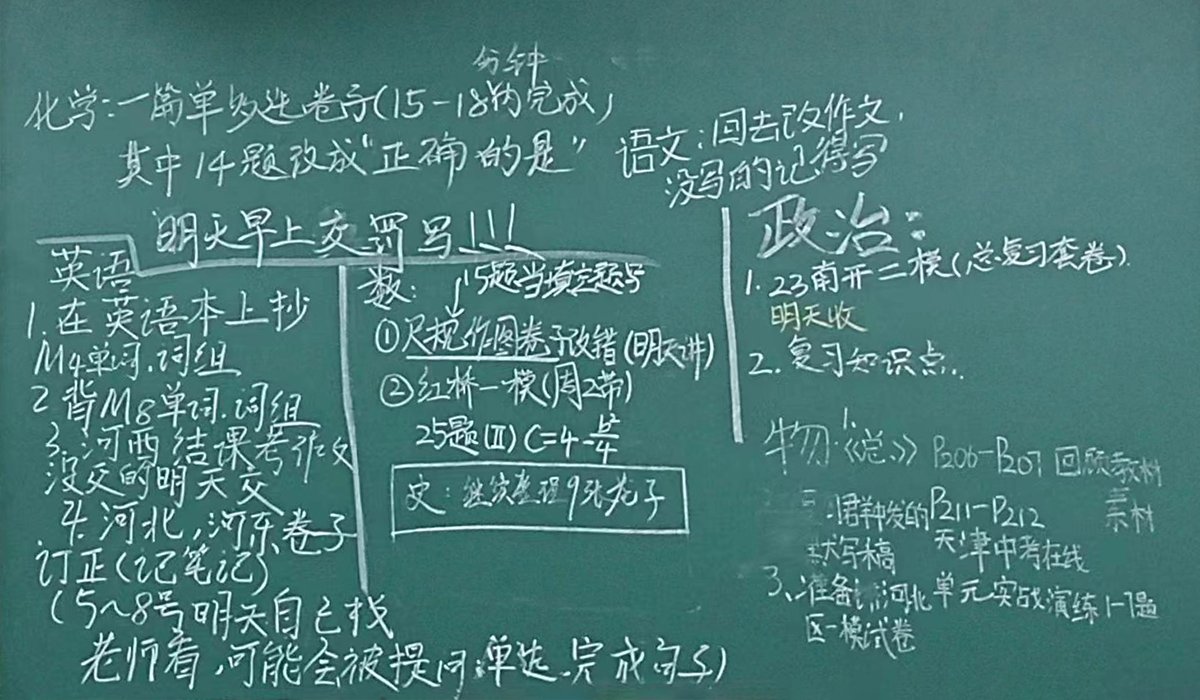 分钟
化学:一篇单多选卷子(15-18内完成)
其中14题改成“正确的是”
语文:回去改作文,
没写的记得写
明天早上交罚写!!!
英语
1.在英语本上抄
M4单词.词组
2背M8单词.词组
3.河西结课考作文
没交的明天交
4.河北,河东卷子
订正(记笔记)
(5~8号明天自己找
老师看,可能会被提问,单选.完成句子)
数:
15题当填空题写
①尺规作图卷子改错(明天讲)
②红桥一模(周2带)
25题(Ⅱ)C=4-
史:继续整理9张卷子
政治:
1.23南开二模(总复习套卷).
明天收
2.复习知识点.
物:1.《总》P206-P207回顾教材
素材
P211-P212
群种发的
默写稿
天津中考在线
单元实战演练1-7题
3、准备 河北
区一模试卷